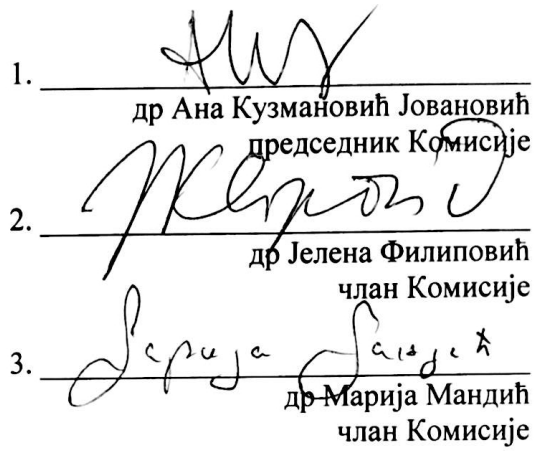 1.
др Ана Кузмановић Јовановић
председник Комисије
2.
др Јелена Филиповић
члан Комисије
3. Марија Мандић
др Марија Мандић
члан Комисије